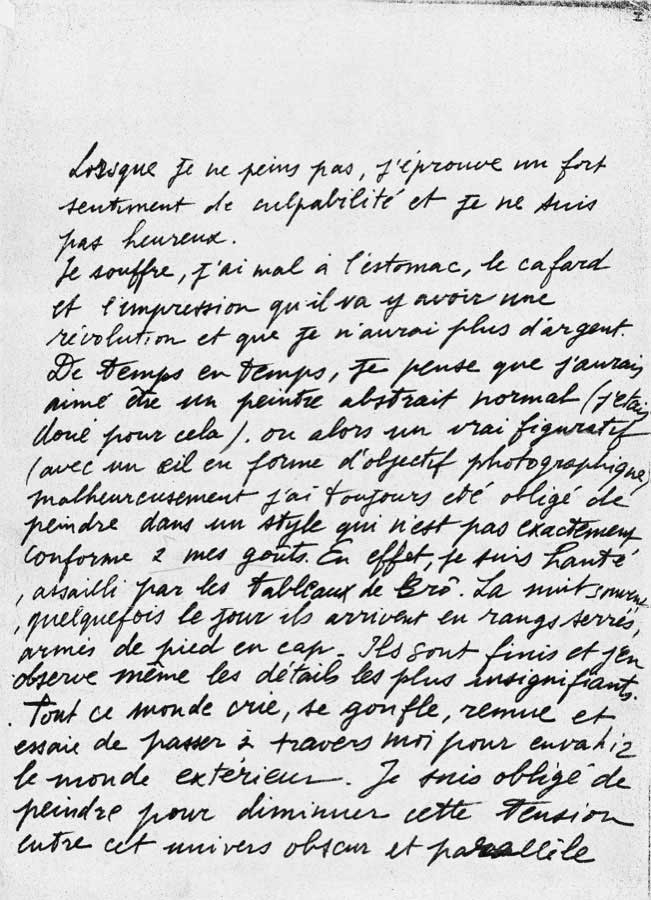 I
Lorsque je ne peins pas, j'éprouve un fort
sentiment de culpabilité et je ne suis
pas heureux.
Je souffre, j'ai mal à l'estomac, le cafard
et l'impression qu'il va y avoir une
révolution et que je n'aurai plus d'argent.
De temps en temps, je pense que j'aurais
aimé être un peintre abstrait normal (j'étais
doué pour cela). ou alors un vrai figuratif
(avec un œil en forme d'objectif photographique)
malheureusement j'ai toujours été obligé de
peindre dans un style qui n'est pas exactement
conforme à mes goûts. En effet, je suis hanté
, assailli par les tableaux de Brô. La nuit souvent
, quelquefois le jour ils arrivent en rangs serrés,
armés de pied en cap. Ils sont finis et j'en
observe même les détails les plus insignifiants.
Tout ce monde crie, se gonfle, remue et
essaie de passer à travers moi pour envahir
le monde extérieur. Je suis obligé de
peindre pour diminuer cette tension
entre cet univers obscur et parallèle